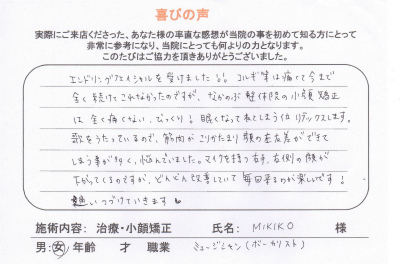 喜びの声
実際にご来店くださった、あなた様の率直な感想が当院の事を初めて知る方にとって
非常に参考になり、当院にとっても何よりの力となります。
このたびはご協力を頂きありがとうございました。
エンドリングフェイシャルを受けました!!。コルギ等は痛くて今まで
全く続けてこれなかったのですが、なかのぶ整体院の小顔矯正
は全く痛くない、びっくり!眠くなってしまう位リラックスします。
歌をうたっているので、筋肉がこりかたまり顔の左右差がでて
しまう事が多く、悩んでいました。マイクを持つ右手、右側の顔が
上がってくるのですが、どんどん改善していて毎回来るのが楽しみです!
通いつづけていきます♥
施術内容: 治療・小顔矯正 氏名: MIKIKO 様
男:女 年齢 才 職業 ミュージシャン(ボーカリスト)